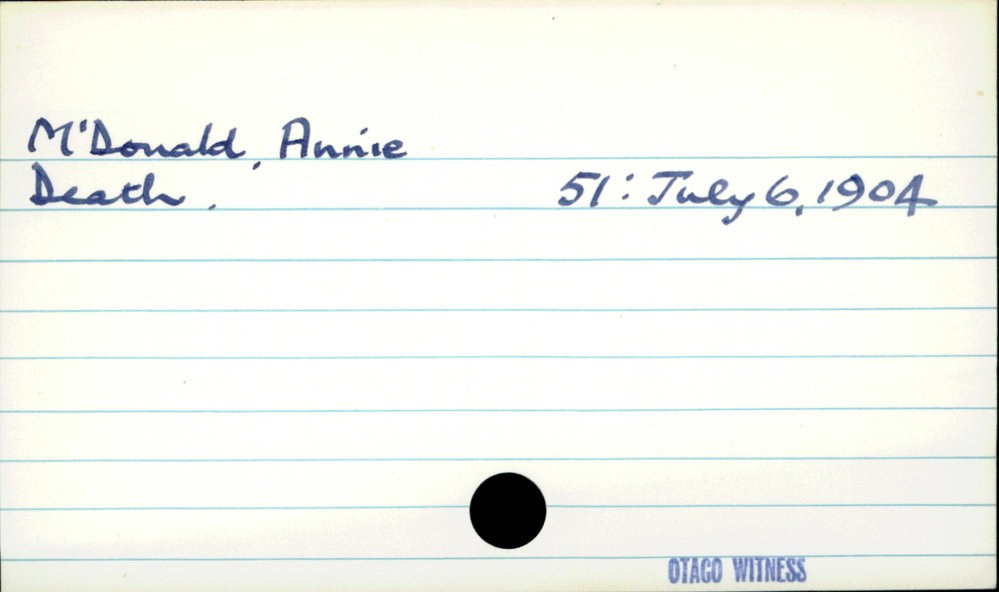 M'Donald, Annie
Death. 51: July 6, 1904
OTAGO WITNESS